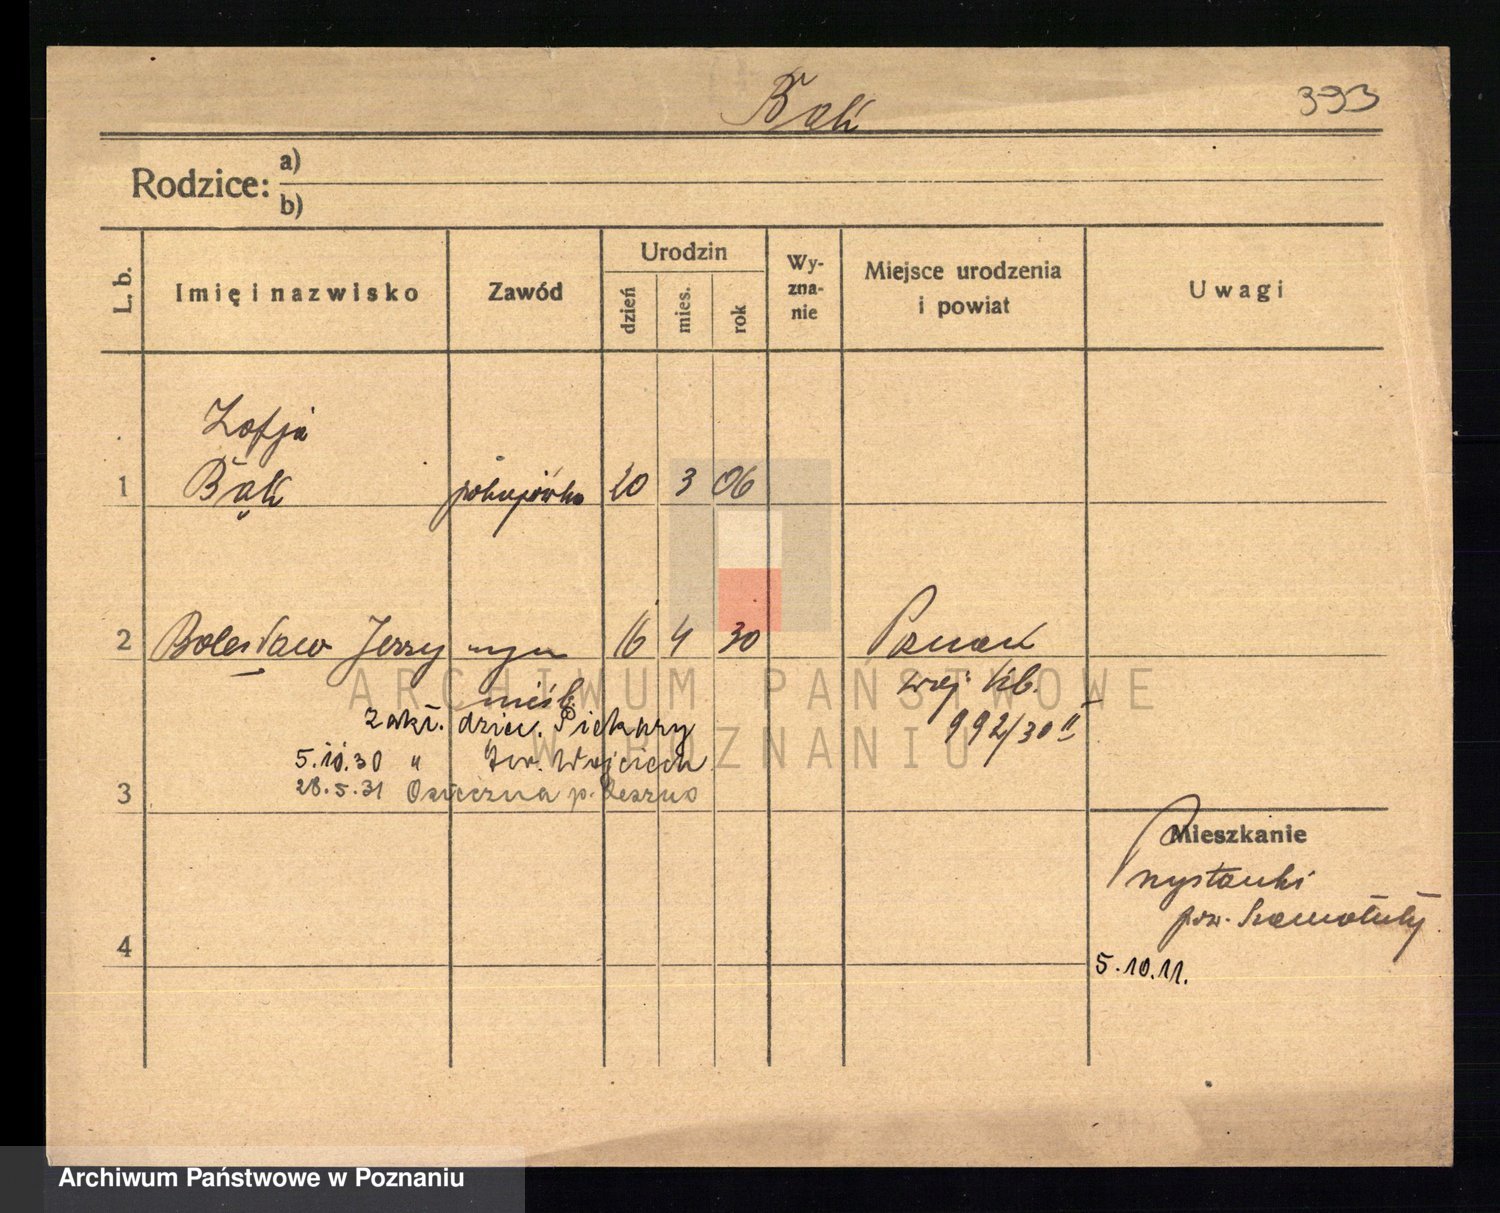 Bąk
393
Rodzice: a)
b)
L. b.
Imię i nazwisko
Zawód
Urodzin
dzień
mies.
rok
Wy-
zna-
nie
Miejsce urodzenia
i powiat
Uwagi
Zofja
1 Bąk pokojówka 20 3 06
2 Bolesław Jerzy syn 16 4 30 Poznań
nieśl.
woj.
zakł. dziec. Piekary
992/30 II
5.10.30 " Św. Wojciech
3 28.5.31 Osieczna p. Leszno
Mieszkanie
Przystanki
pow. Szamotuły
4
5.10.11.
ARCHIWUM PAŃSTWOWE
W POZNANIU
Archiwum Państwowe w Poznaniu